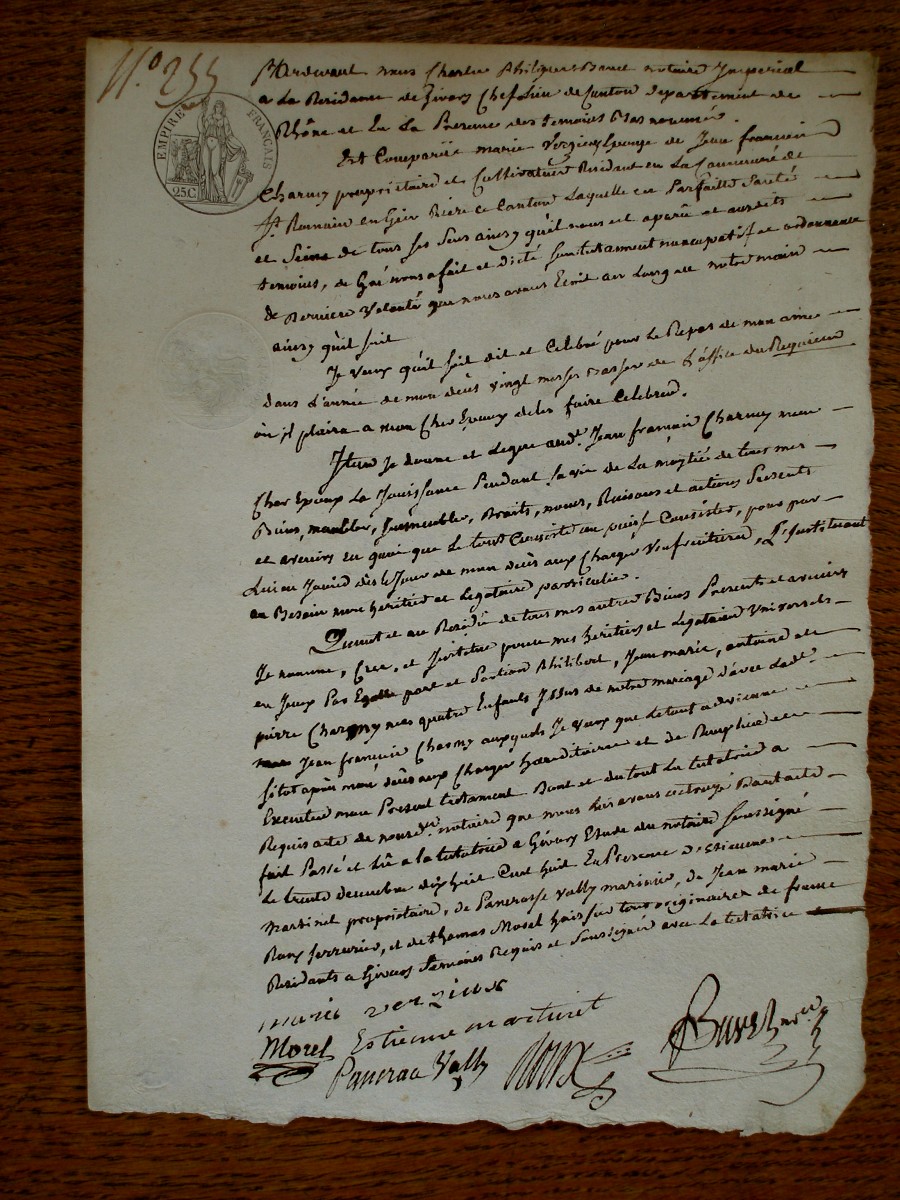 N.º 255
EMPIRE FRANÇAIS
25C
Pardevant nous Charles Philippe Buret notaire Imperial
a La Residance de Givors Chef Lieu de Canton departement du
Rhône et En La Presence des temoins Bas nommés.
Est Comparüe marie Verzieux Epouze de Jean françois
Charmy propriétaire et Cultivateur Résidant en La Commune de
St Romain en Gier Rière ce Canton Laquelle en Parfaitte Santé
et Saine de tous ses Sens ainsy qu'il nous est aparü et ausdits
temoins, de Gré nous a fait et dicté Son testament nuncupatif et ordonnance
de Derniere Volonté que nous avons Ecrit au Long de notre main
ainsy qu'il suit
Je Veux qu'il soit dit et Celebré pour Le Repos de mon ame
dans L'année de mon décès vingt messes Basses de L'office du Requiem
ou il plaira a mon Cher Epoux de les faire Celebrer.
Item Je donne et Legue audt. Jean françois Charmy mon
Cher Epoux La Jouissance Pendant Sa vie de La moytié de tous mes
Biens, meubles, Immeubles, Droits, noms, Raisons et actions Présents
et avenirs En quoi que Le tout Consiste ou puisse Consister, pour par
Lui en Jouir dès le Jour de mon décès aux Charges Usufruitieres, L'Instituant
au Besoin mon heritier et Legataire particulier.
Quant et au Residü de tous mes autres Biens Présent et avenirs
Je nomme, Crée, et Institue pour mes heritiers et Legataires Universels
en Iceux Par Egalle part et Portion Philibert, Jean marie, antoine et
pierre Charmy mes quatre Enfants Issus de notre mariage d'avec Ledt.
Jean françois Charmy auxquels Je Veux que le tout advienne
sitot après mon décès aux Charges héréditaires et de
Executer mon Present testament Dont et du tout La testatrice a
Requis acte de nousdt. notaire que nous Lui avons octroyé Dont acte
fait Passé et Lü a la testatrice a Givors Etude du notaire Soussigné
Le trente decembre dixhuit Cent huit En Presence d'Estienne
Martinet propriétaire, de Pancrasse Vally marinier, de Jean marie
Roux serrurier, et de thomas Morel huissier tous originaires de france
Residants a Givors temoins Requis et Soussignés avec La testatrice
marie verzieux
Morel Estienne martinet Buret nre
Pancrac Vally Roux